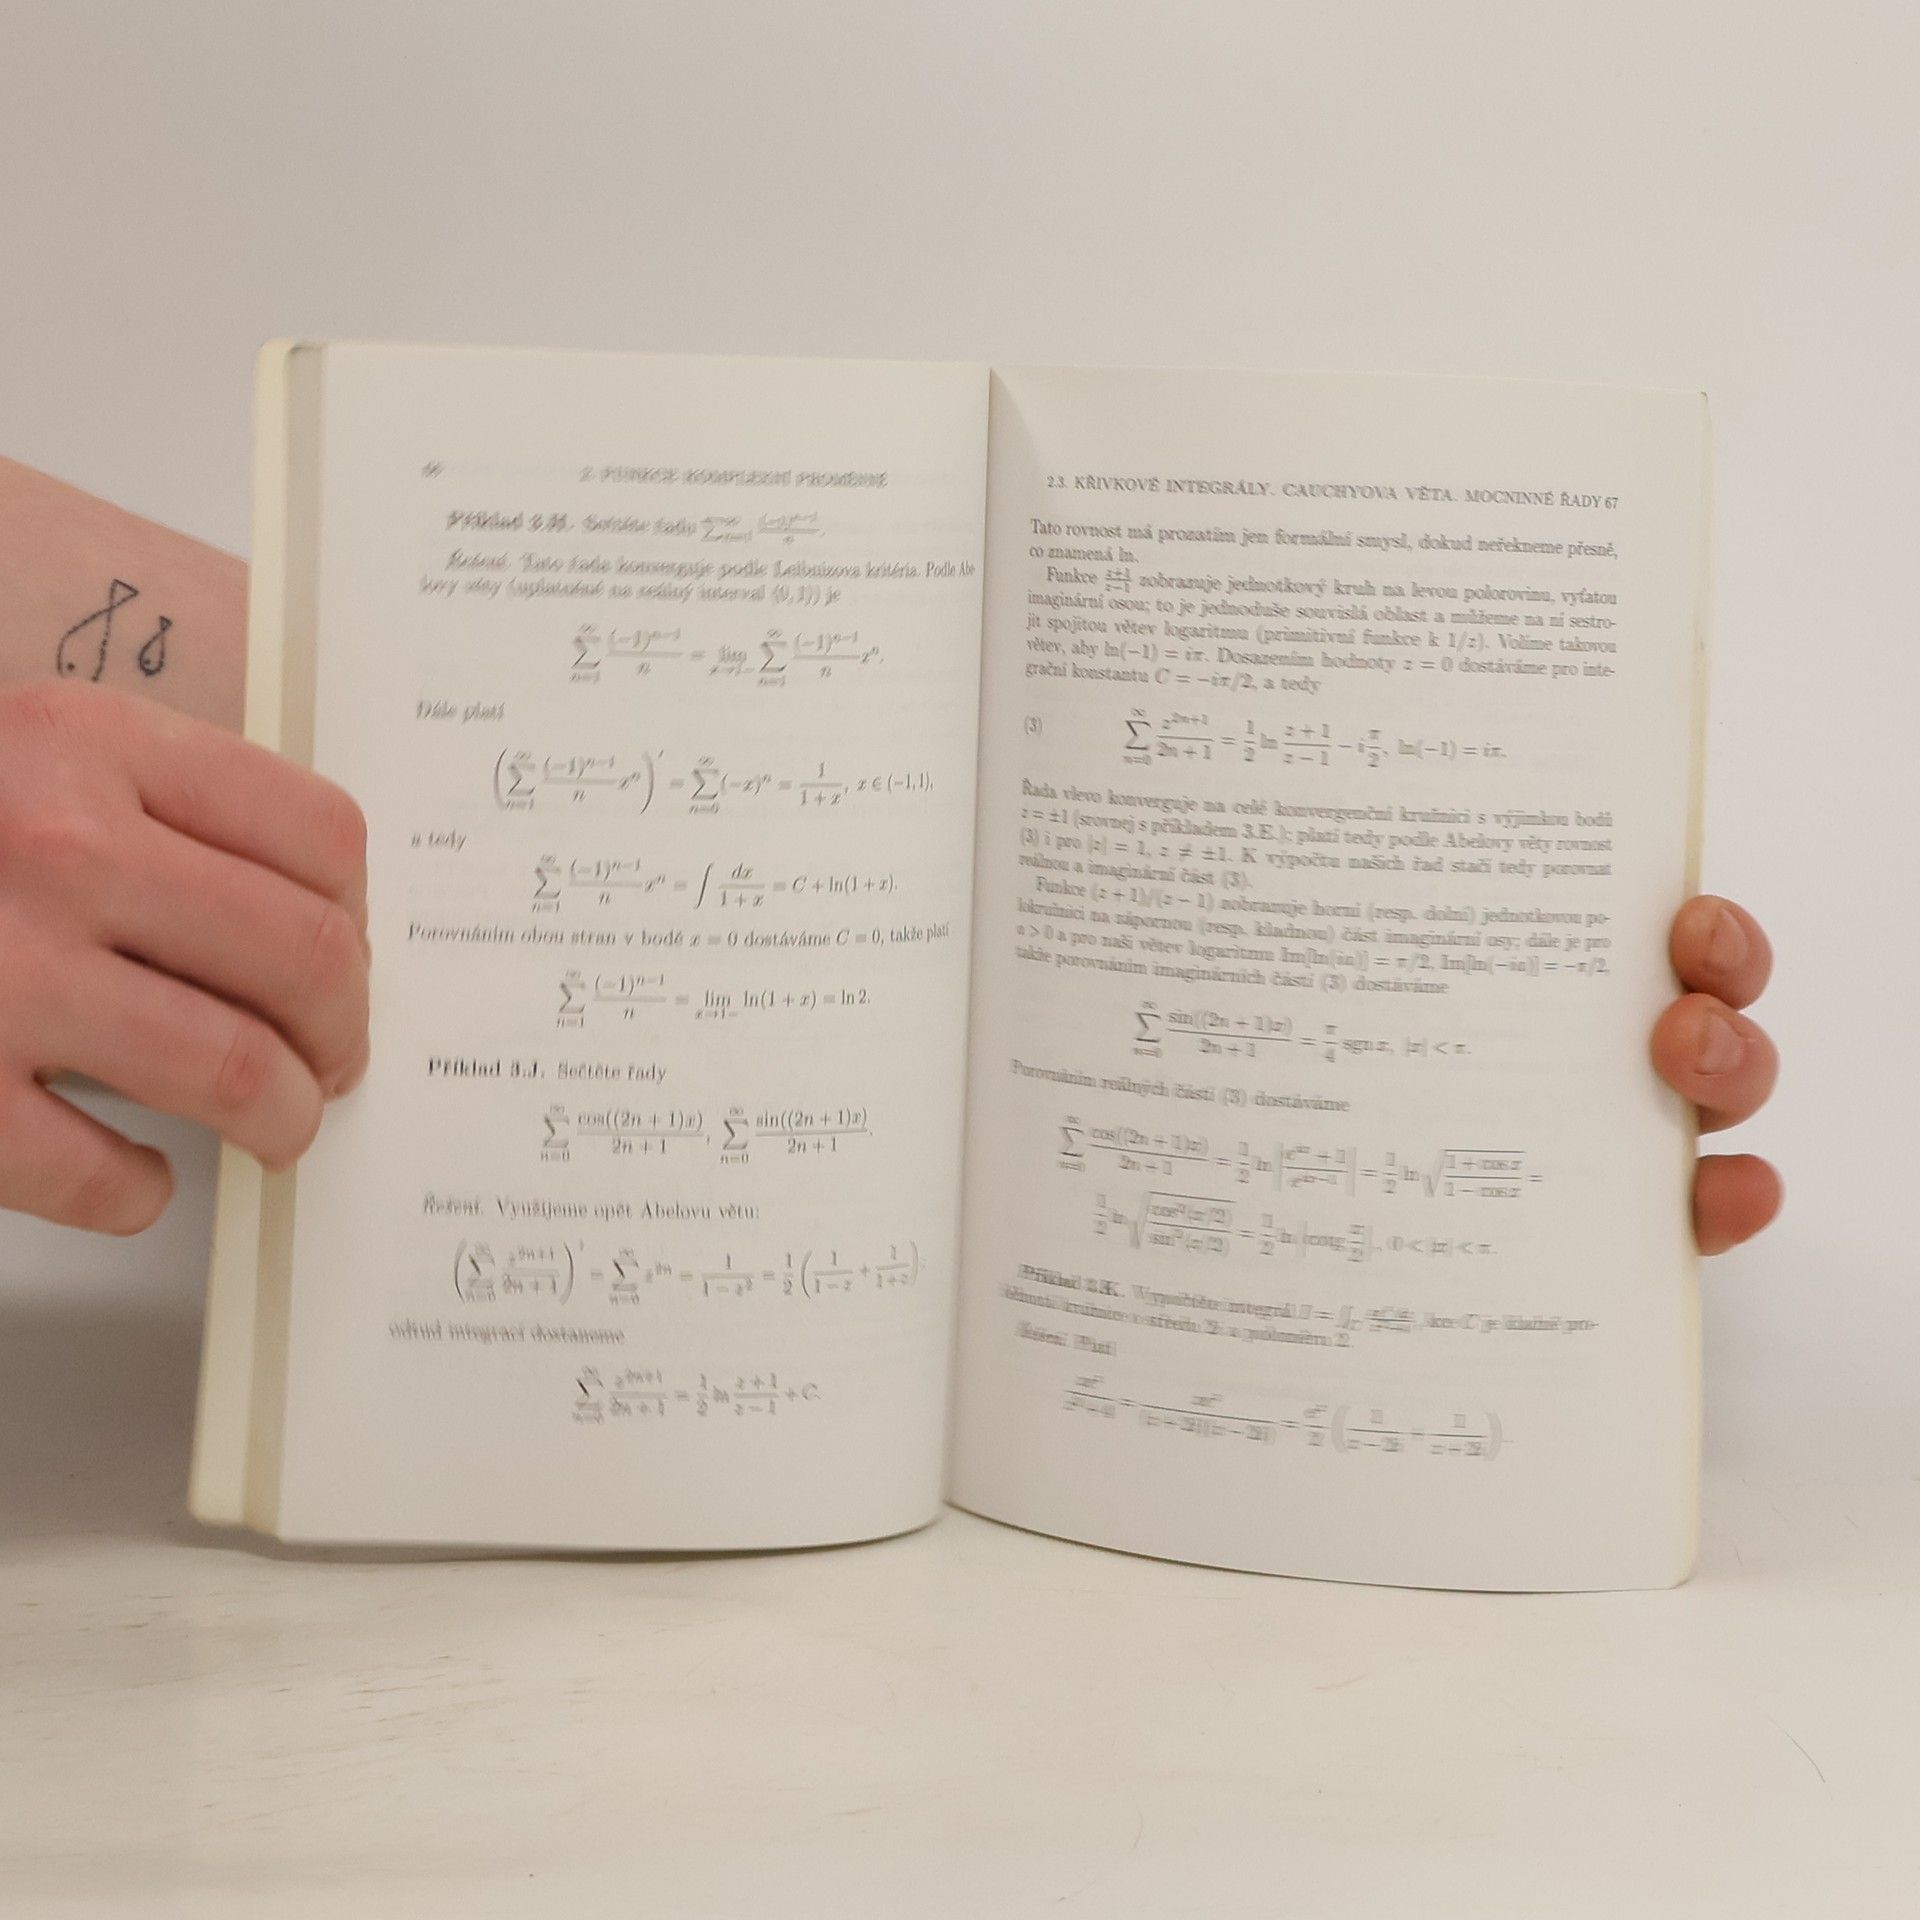 66 2. FUNKCE KOMPLEXNÍ PROMĚNNÉ
Příklad 3.I. Sečtěte řadu \sum_{n=1}^{\infty} \frac{(-1)^{n-1}}{n}.
Řešení. Tato řada konverguje podle Leibnizova kritéria. Podle Abe-
lovy věty (uplatněné na reálný interval (0,1)) je
\sum_{n=1}^{\infty} \frac{(-1)^{n-1}}{n} = \lim_{x→1-} \sum_{n=1}^{\infty} \frac{(-1)^{n-1}}{n} x^n.
Dále platí
\left( \sum_{n=1}^{\infty} \frac{(-1)^{n-1}}{n} x^n \right)' = \sum_{n=0}^{\infty} (-x)^n = \frac{1}{1+x}, x ∈ (-1,1),
a tedy
\sum_{n=1}^{\infty} \frac{(-1)^{n-1}}{n} x^n = \int \frac{dx}{1+x} = C + ln(1+x).
Porovnáním obou stran v bodě x = 0 dostáváme C = 0, takže platí
\sum_{n=1}^{\infty} \frac{(-1)^{n-1}}{n} = \lim_{x→1-} ln(1+x) = ln 2.
Příklad 3.J. Sečtěte řady
\sum_{n=0}^{\infty} \frac{cos((2n+1)x)}{2n+1}, \sum_{n=0}^{\infty} \frac{sin((2n+1)x)}{2n+1}.
Řešení. Využijeme opět Abelovu větu:
\left( \sum_{n=0}^{\infty} \frac{z^{2n+1}}{2n+1} \right)' = \sum_{n=0}^{\infty} z^{2n} = \frac{1}{1-z^2} = \frac{1}{2} \left( \frac{1}{1-z} + \frac{1}{1+z} \right);
odtud integrací dostaneme
\sum_{n=0}^{\infty} \frac{z^{2n+1}}{2n+1} = \frac{1}{2} ln \frac{z+1}{z-1} + C.
2.3. KŘIVKOVÉ INTEGRÁLY. CAUCHYOVA VĚTA. MOCNINNÉ ŘADY 67
Tato rovnost má prozatím jen formální smysl, dokud neřekneme přesně,
co znamená ln.
Funkce \frac{z+1}{z-1} zobrazuje jednotkový kruh na levou polorovinu, vyťatou
imaginární osou; to je jednoduše souvislá oblast a můžeme na ní sestro-
jit spojitou větev logaritmu (primitivní funkce k 1/z). Volíme takovou
větev, aby ln(-1) = iπ. Dosazením hodnoty z = 0 dostáváme pro inte-
grační konstantu C = -iπ/2, a tedy
(3) \sum_{n=0}^{\infty} \frac{z^{2n+1}}{2n+1} = \frac{1}{2} ln \frac{z+1}{z-1} - i\frac{π}{2}, ln(-1) = iπ.
Řada vlevo konverguje na celé konvergenční kružnici s výjimkou bodů
z = ±1 (srovnej s příkladem 3.E.); platí tedy podle Abelovy věty rovnost
(3) i pro |z| = 1, z ≠ ±1. K výpočtu našich řad stačí tedy porovnat
reálnou a imaginární část (3).
Funkce (z+1)/(z-1) zobrazuje horní (resp. dolní) jednotkovou po-
lokružnici na zápornou (resp. kladnou) část imaginární osy; dále je pro
a > 0 a pro naši větev logaritmu Im[ln(ia)] = π/2, Im[ln(-ia)] = -π/2,
takže porovnáním imaginárních částí (3) dostáváme
\sum_{n=0}^{\infty} \frac{sin((2n+1)x)}{2n+1} = \frac{π}{4} sgn x, |x| < π.
Porovnáním reálných částí (3) dostáváme
\sum_{n=0}^{\infty} \frac{cos((2n+1)x)}{2n+1} = \frac{1}{2} ln \left| \frac{e^{ix}+1}{e^{ix}-1} \right| = \frac{1}{2} ln \sqrt{\frac{1+cos x}{1-cos x}} =
\frac{1}{2} ln \sqrt{\frac{cos^2(x/2)}{sin^2(x/2)}} = \frac{1}{2} ln \left| cotg \frac{x}{2} \right|, 0 < |x| < π.
Příklad 3.K. Vypočtěte integrál kde C je kladně
kružnice o středu 2i a poloměru 2.
Řešení. Platí